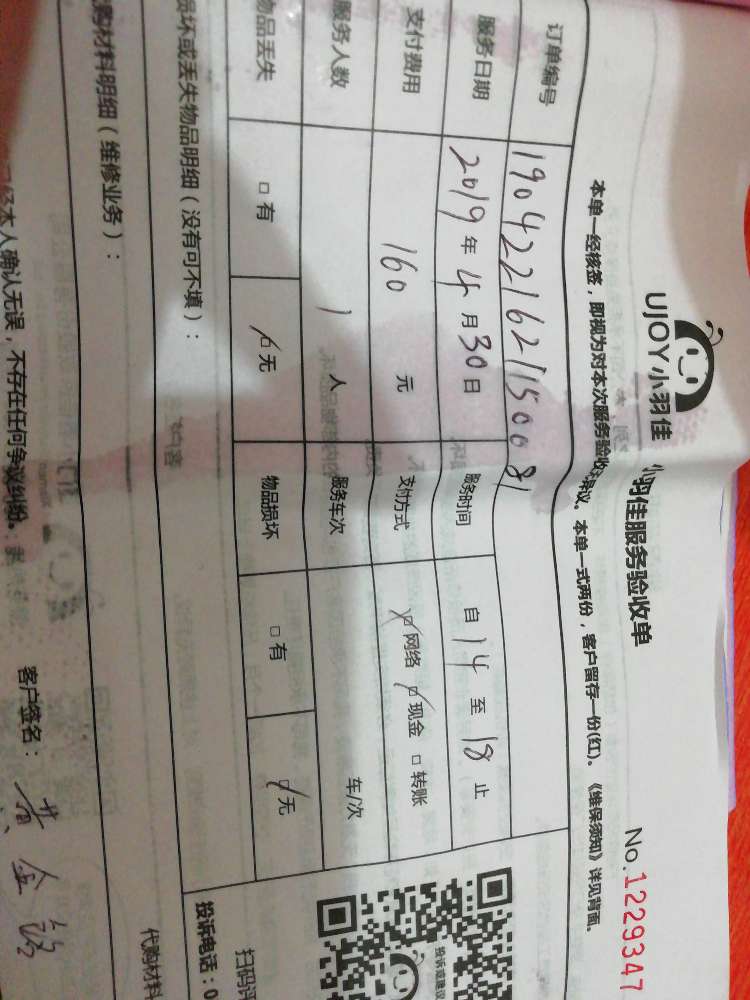 UJOY小羽佳
小羽佳服务验收单
No.1229347
本单一经核签，即视为对本次服务验收
议。本单一式两份，客户留存一份(红)。《维保须知》详见背面。
订单编号 1904221621150081
服务日期 2019年4月30日 服务时间 自14至18止
支付费用 160元 支付方式 网络 现金 □转账
服务人数 1人 服务车次 车/次
物品丢失 □有 无 物品损坏 □有 无
损坏或丢失物品明细（没有可不填）：
购材料明细（维修业务）：
代购材料
经本人确认无误，不存在任何争议纠纷。
客户签名：
投诉或建议
扫码评
投诉电话：0